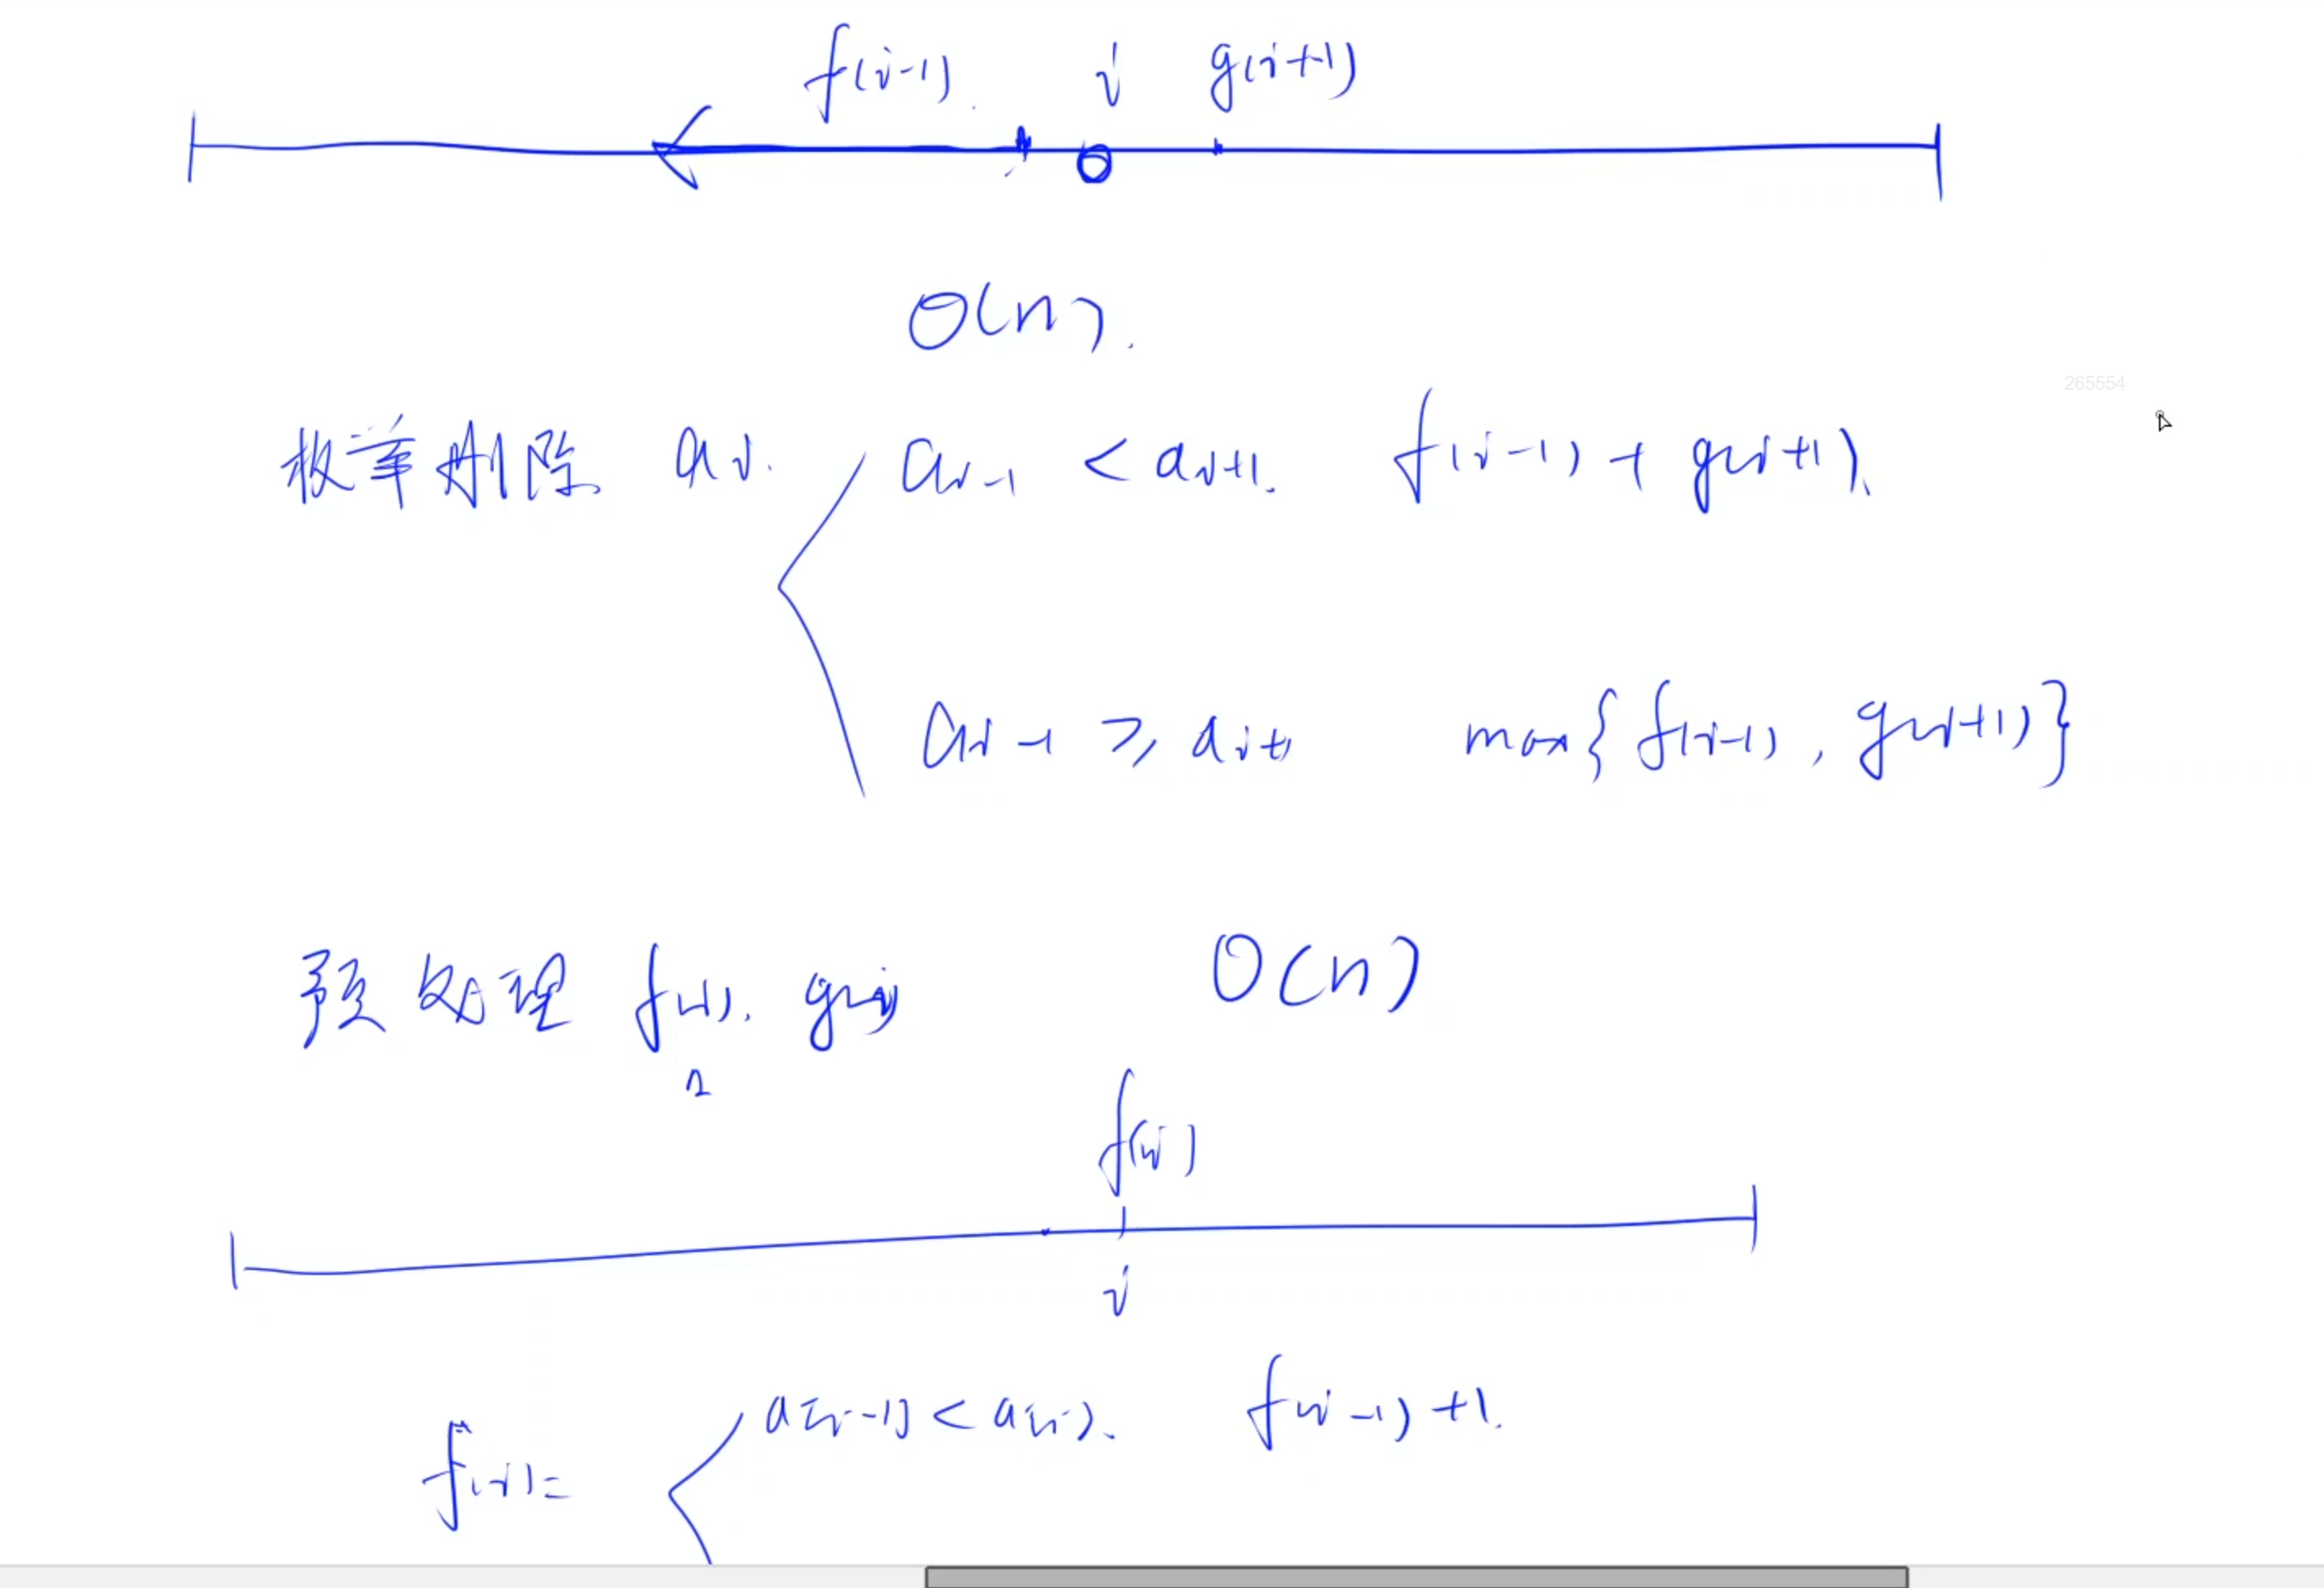 f(i-1). i g(i+1)
O(n).
265554
枚举删除 ai. ai-1 < ai+1. f(i-1) + g(i+1).
ai-1 ≥ ai+1 max{f(i-1), g(i+1)}
预处理 f(i), g(i) O(n)
f(i)
i
a[i-1] < a[i]. f(i-1) +1.
f(i)=